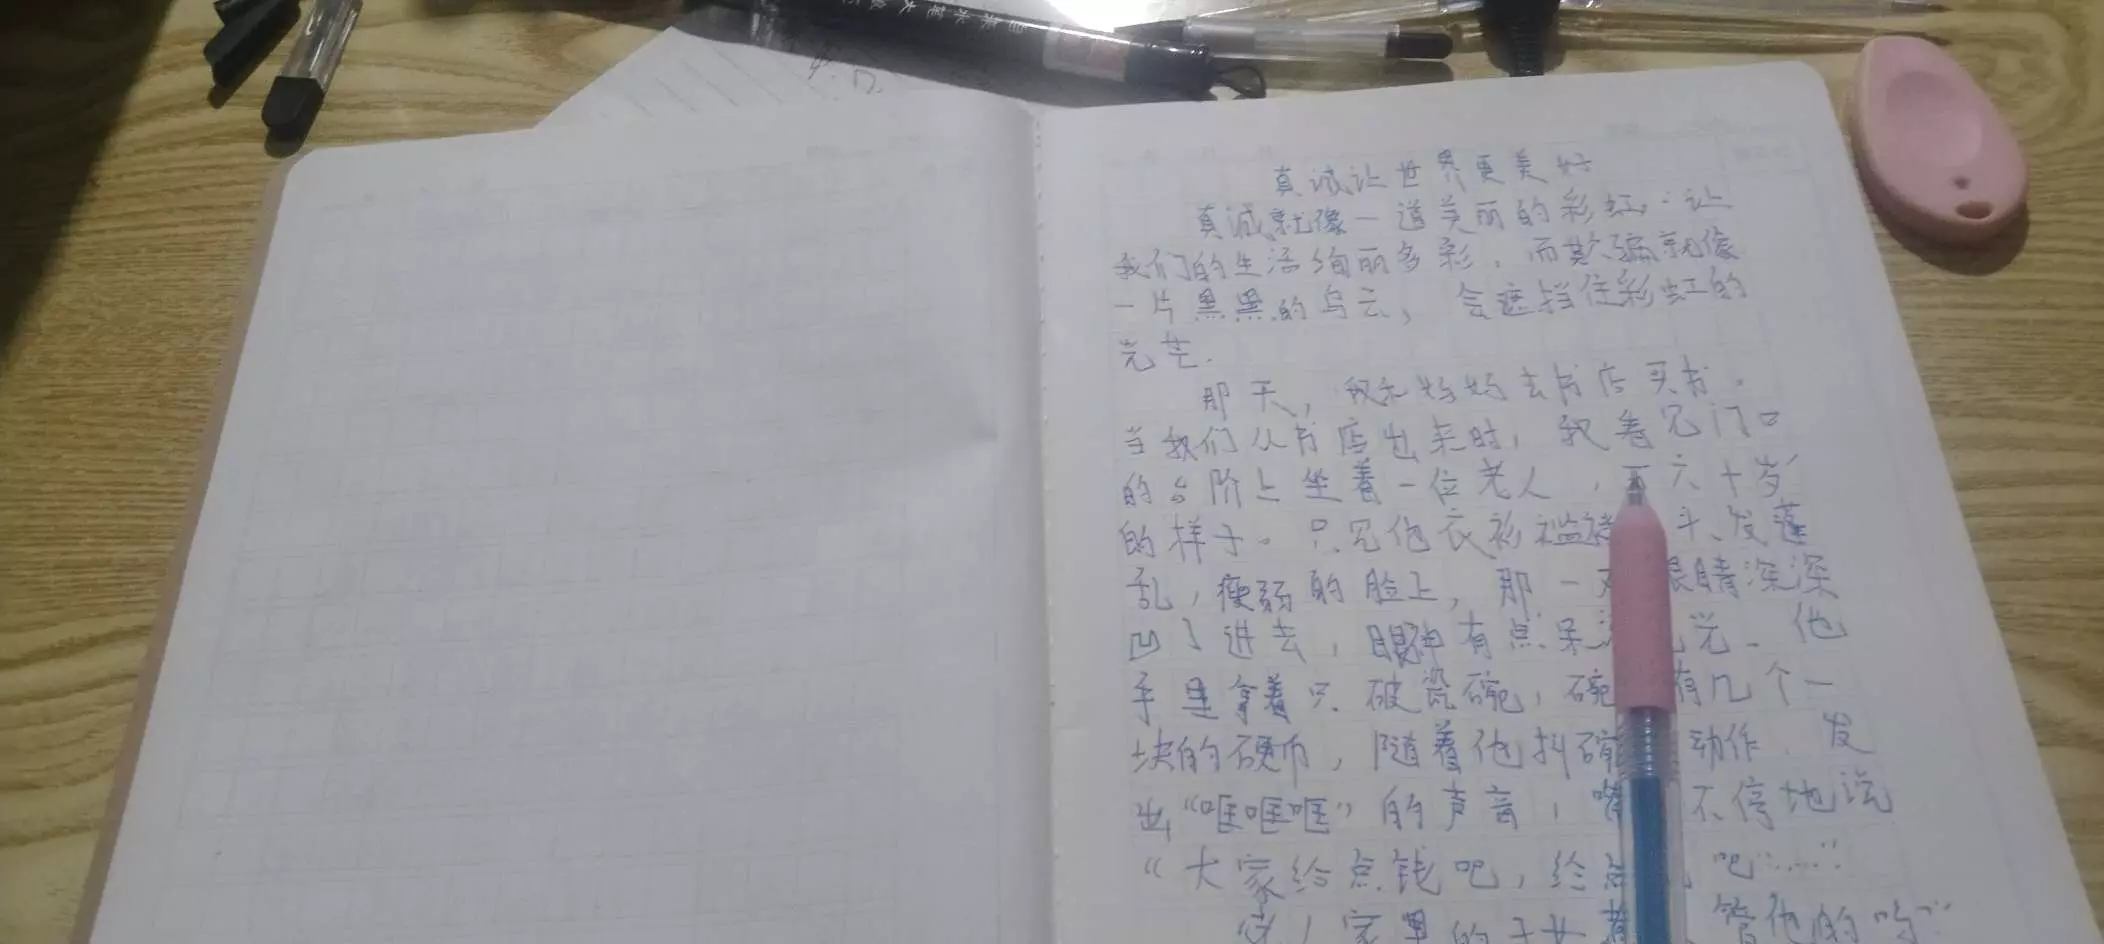 真诚让世界更美好
真诚就像一道美丽的彩虹，让
我们的生活绚丽多彩，而欺骗就像
一片黑黑的乌云，会遮挡住彩虹的
光芒.
那天，我和妈妈去书店买书，
当我们从书店出来时，我看见门口
的台阶上坐着一位老人，五六十岁
的样子。只见他衣衫褴褛 头发蓬
乱，瘦弱的脸上，那一双眼睛深深
凹了进去，眼神有点呆 光. 他
手里拿着只破瓷碗，碗 有几个一
块的硬币，随着他抖碗 动作，发
出“哐哐哐”的声音，嘴 不停地说
“大家给点钱吧，给点 吧……”
家里的子女 管他的吗